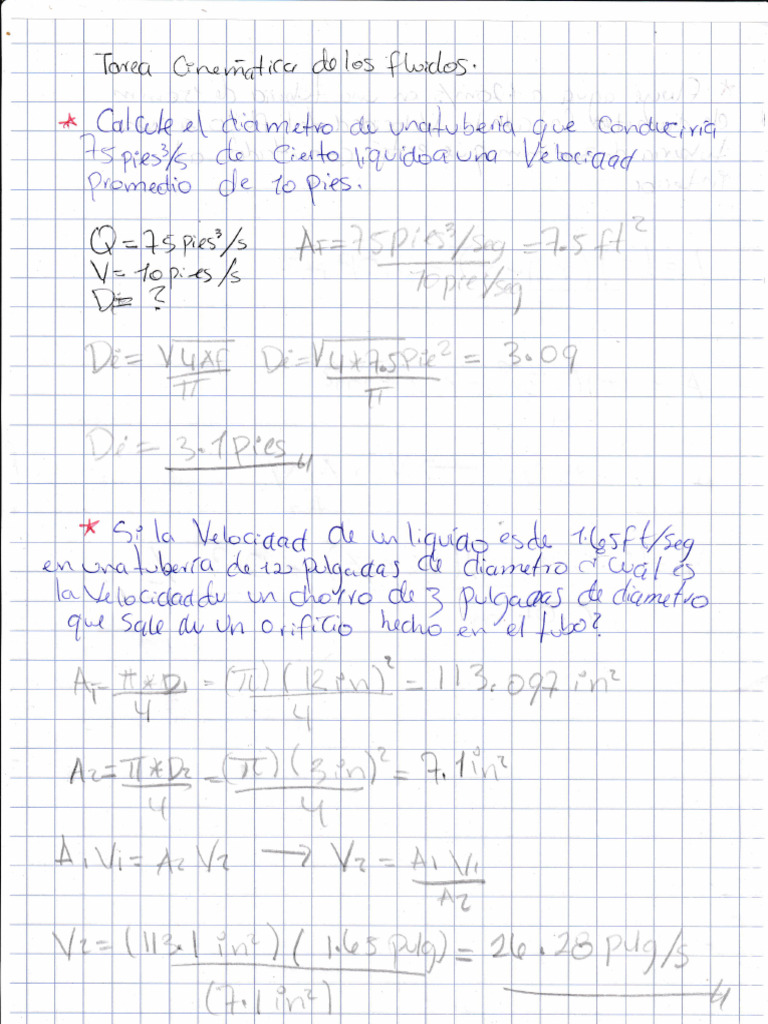 Tarea Cinemática de los fluidos.
* Calcule el diametro de una tuberia que conduciria
75 pies³/s de cierto liquido a una Velocidad
promedio de 10 pies.
Q = 75 pies³/s
V = 10 pies/s
Di = ?
Af = 75 pies³/seg / 10 pies/seg = 7.5 ft²
Di = √4*Af / π Di = √4*7.5 pie² / π = 3.09
Di = 3.1 pies
* Si la Velocidad de un liquido es de 1.65 ft/seg
en una tubería de 12 pulgadas de diametro ¿ Cual es
la Velocidad de un chorro de 3 pulgadas de diametro
que sale de un orificio hecho en el tubo?
A1 = π*D1 / 4 = (π)(12 in)² / 4 = 113.097 in²
A2 = π*D2 / 4 = (π)(3 in)² / 4 = 7.1 in²
A1 V1 = A2 V2 → V2 = A1 V1 / A2
V2 = (113.1 in²)(1.65 pulg) / (7.1 in²) = 26.28 pulg/s